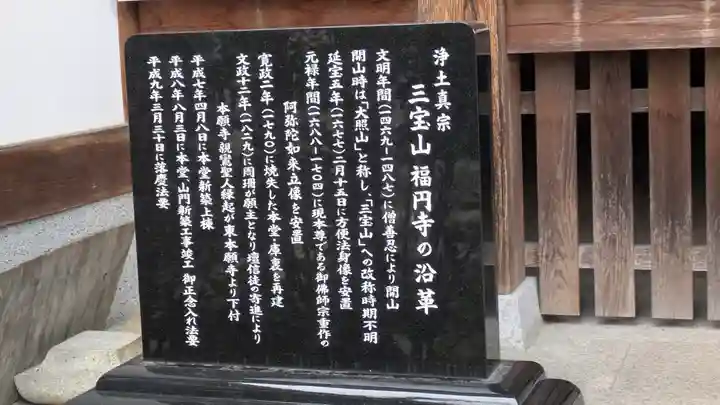 浄土真宗
三宝山 福円寺の沿革
文明年間(一四六九ー一四八七)に僧善忍により開山
開山時は「大照山」と称し、「三宝山」への改称時期不明
延宝五年(一六七七)二月十五日に方便法身像を安置
元禄年間(一六八八ー一七〇四)に現本尊である御佛師宗重作の
阿弥陀如来立像を安置
寛政二年(一七九〇)に焼失した本堂・庫裏を再建
文政十二年(一八二九)に周珊が願主となり壇信徒の寄進により
本願寺親鸞聖人縁起が東本願寺より下付
平成七年四月八日に本堂新築上棟
平成八年八月三日に本堂・山門新築工事竣工 御正念入れ法要
平成九年三月三十日に落慶法要